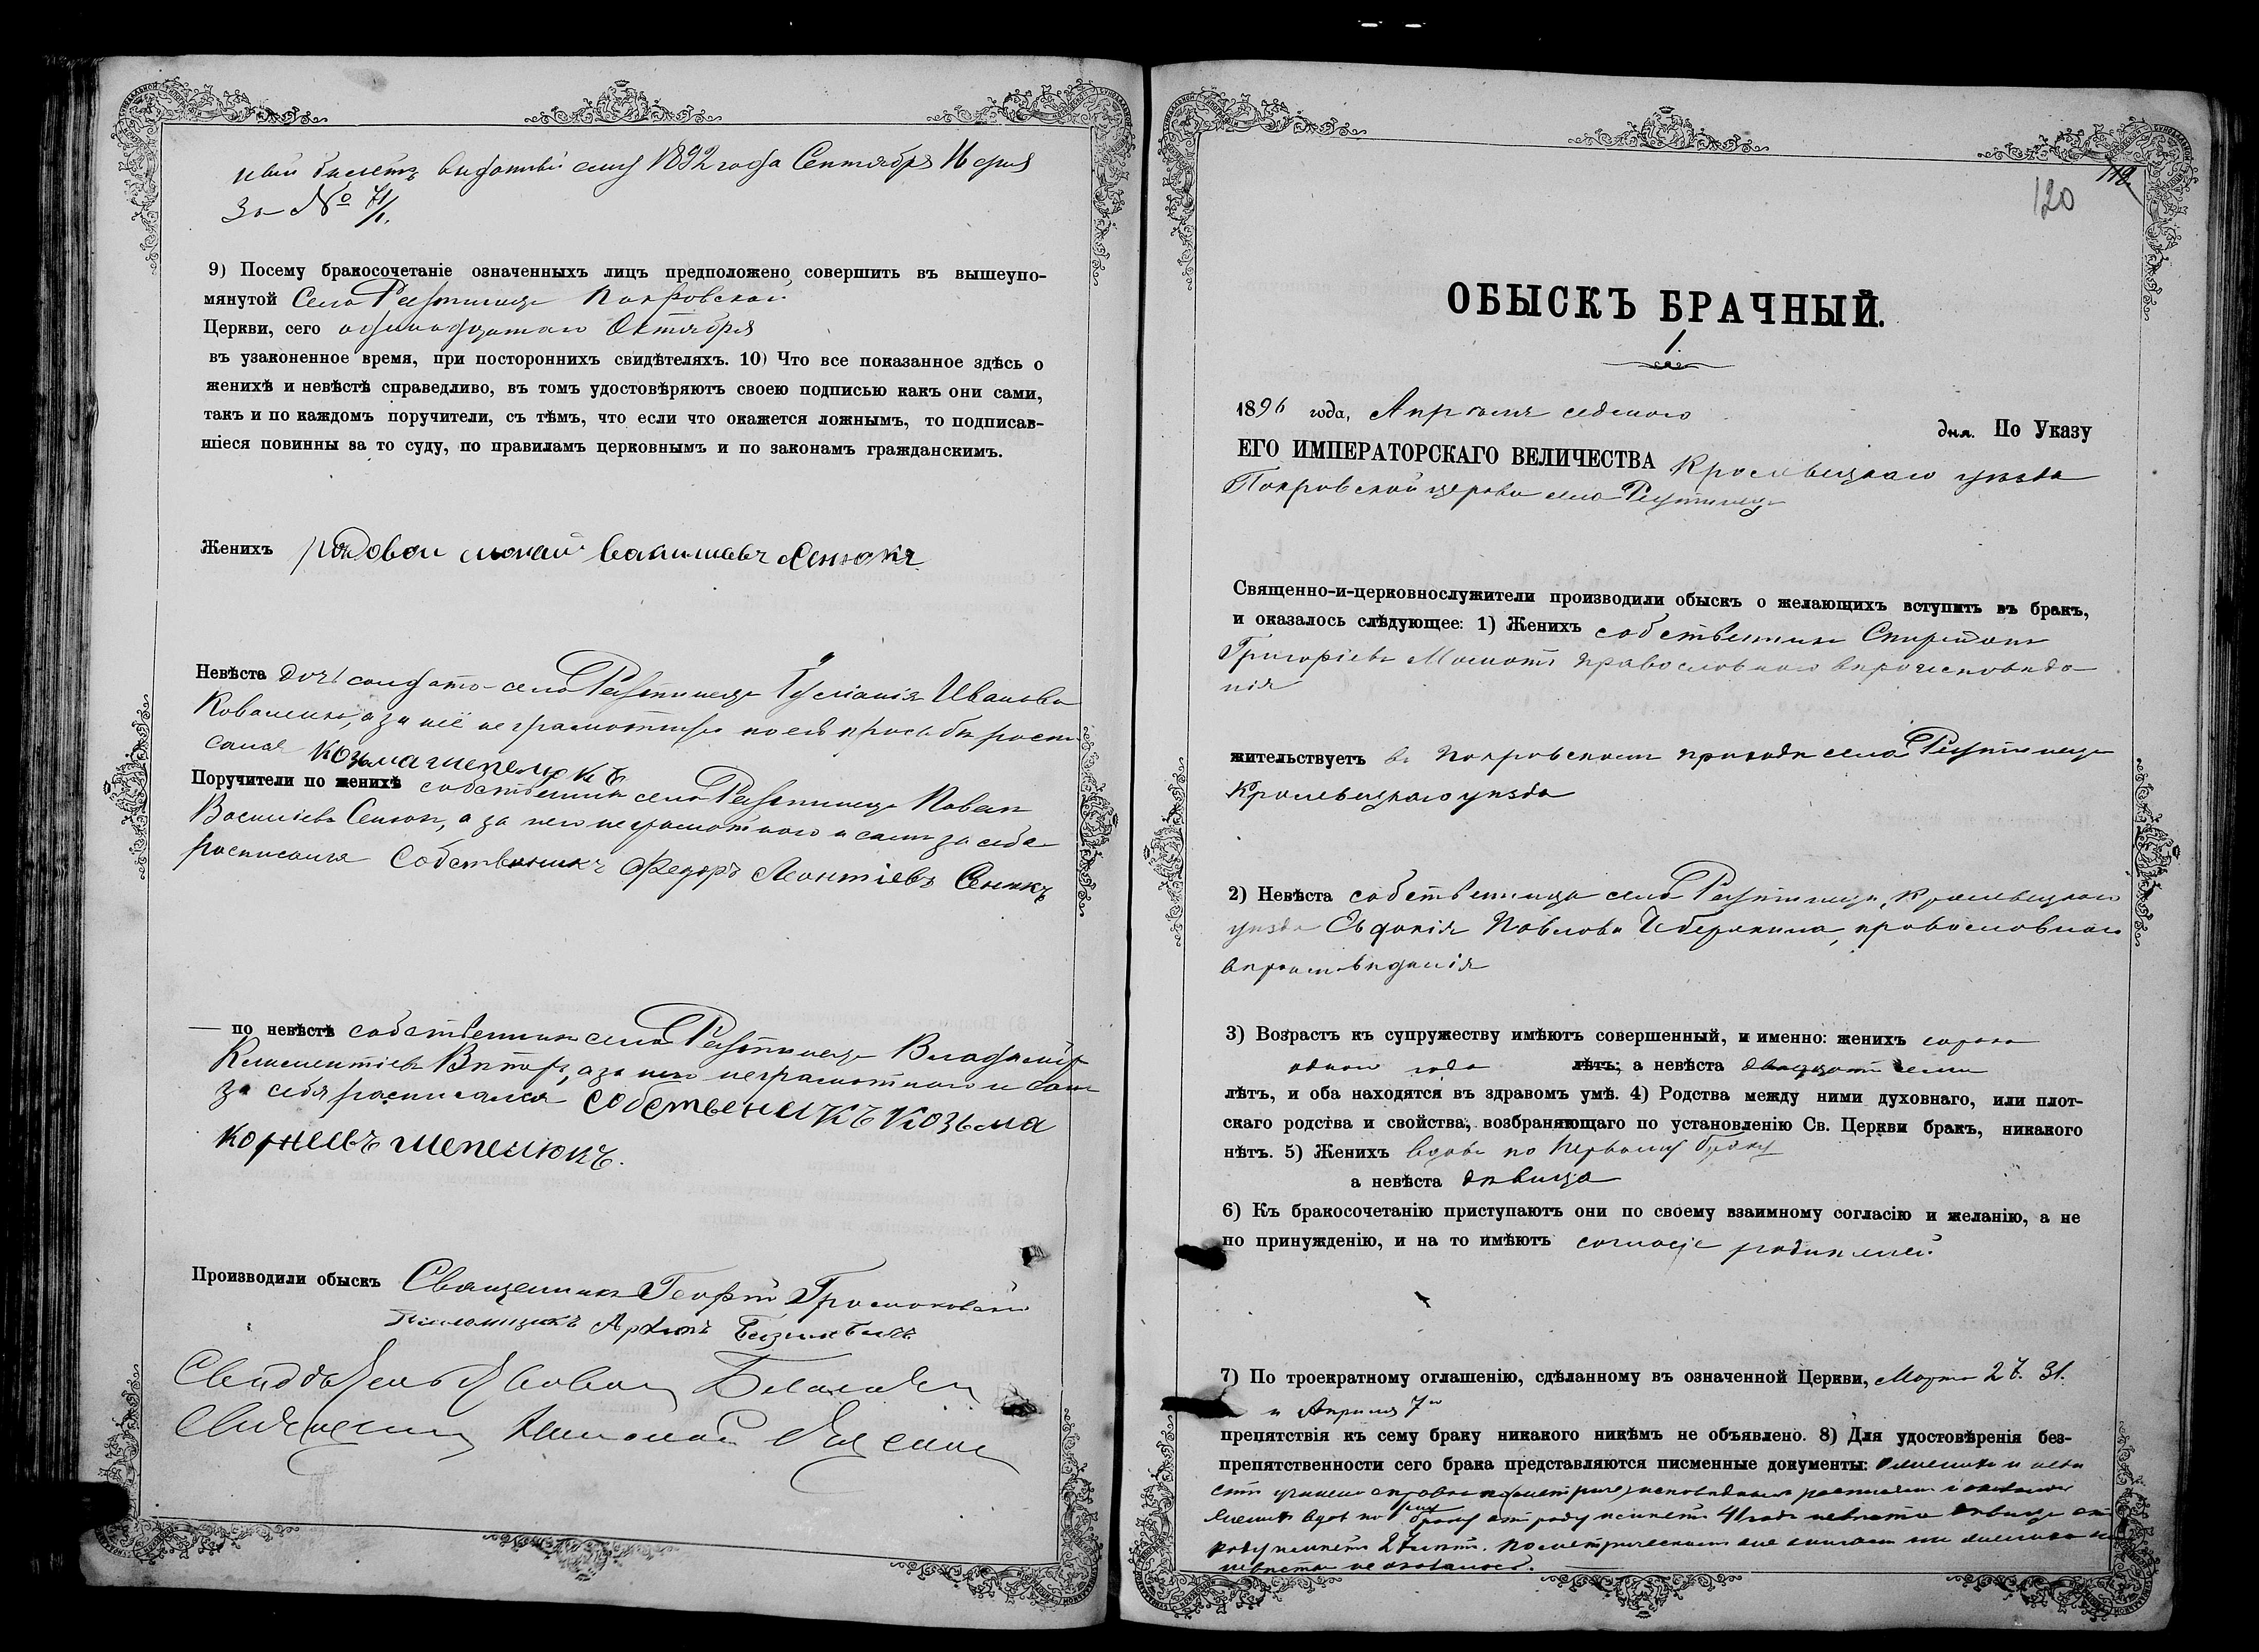 ный билетъ выданный ему 1892 года Сентября 16 дня
За № 71/1.
9) Посему бракосочетаніе означенныхъ лицъ предположено совершить въ вышеупо-
мянутой Села Реутинецъ Покровской
Церкви, сего одинадцатаго Октября
въ узаконенное время, при постороннихъ свидѣтеляхъ. 10) Что все показанное здѣсь о
женихѣ и невѣстѣ справедливо, въ томъ удостовѣряютъ своею подписью какъ они сами,
такъ и по каждомъ поручители, съ тѣмъ, что если что окажется ложнымъ, то подписав-
шіеся повинны за то суду, по правиламъ церковнымъ и по законамъ гражданскимъ.
Женихъ рядовой Васильевъ Сенюкъ
Невѣста дочь солдата села Реутинецъ Іуліанія Иванова
Коваленко, а за неё неграмотную по её прозьбѣ роспи
сался Козьма шепелюкъ
Поручители по женихѣ собственникъ села Реутинецъ Павелъ
Василіевъ Сенюк, а за него неграмотного и самъ за себя
росписался Собственникъ Федоръ Леонтіевъ Сенюкъ
— по невѣстѣ собственникъ села Реутинецъ Владиміръ
Климентіевъ а за него неграмотного и самъ
за себя росписался собственикъ Козьма
корнеевъ шепелюкъ.
Производили обыскъ Священникъ Георгій Громаковскій
Псаломщикъ
119
120
ОБЫСКЪ БРАЧНЫЙ.
1.
1896 года, Апрѣля седмого дня. По Указу
ЕГО ИМПЕРАТОРСКАГО ВЕЛИЧЕСТВА Кролевецкаго уѣзда
Покровской церкви села Реутинецъ
Священно-и-церковнослужители производили обыскъ о желающихъ вступить въ бракъ,
и оказалось слѣдующее: 1) Женихъ собственникъ Спиридонъ
Григоріевъ православнаго вѣроисповѣда
нія
жительствуетъ въ Покровскомъ приходѣ села Реутинецъ
Кролевецкаго уѣзда
2) Невѣста собственница села Реутинецъ, Кролевецкаго
уѣзда Евдокія Павлова православнаго
вѣроисповѣданія
3) Возрастъ къ супружеству имѣютъ совершенный, и именно: женихъ сорока
одного года лѣтъ; а невѣста двадцати семи
лѣтъ, и оба находятся въ здравомъ умѣ. 4) Родства между ними духовнаго, или плот-
скаго родства и свойства, возбраняющаго по установленію Св. Церкви бракъ, никакого
нѣтъ. 5) Женихъ вдовъ по первому браку
а невѣста дѣвица
6) Къ бракосочетанію приступаютъ они по своему взаимному согласію и желанію, а не
по принужденію, и на то имѣютъ согласіе родителей
7) По троекратному оглашенію, сдѣланному въ означенной Церкви, Марта 27. 31.
и Апрѣля 7го
препятствія къ сему браку никакого никѣмъ не объявлено. 8) Для удостовѣренія без-
препятственности сего брака представляются писменные документы: о женихѣ и невѣ
стѣ учинена справка по исповѣднымъ росписямъ и оказалось
женихъ вдовъ по 1 браку отъ роду имѣетъ 41 годъ невѣста дѣвица отъ
роду имѣетъ 27 лѣтъ.
невѣсты не оказалось.